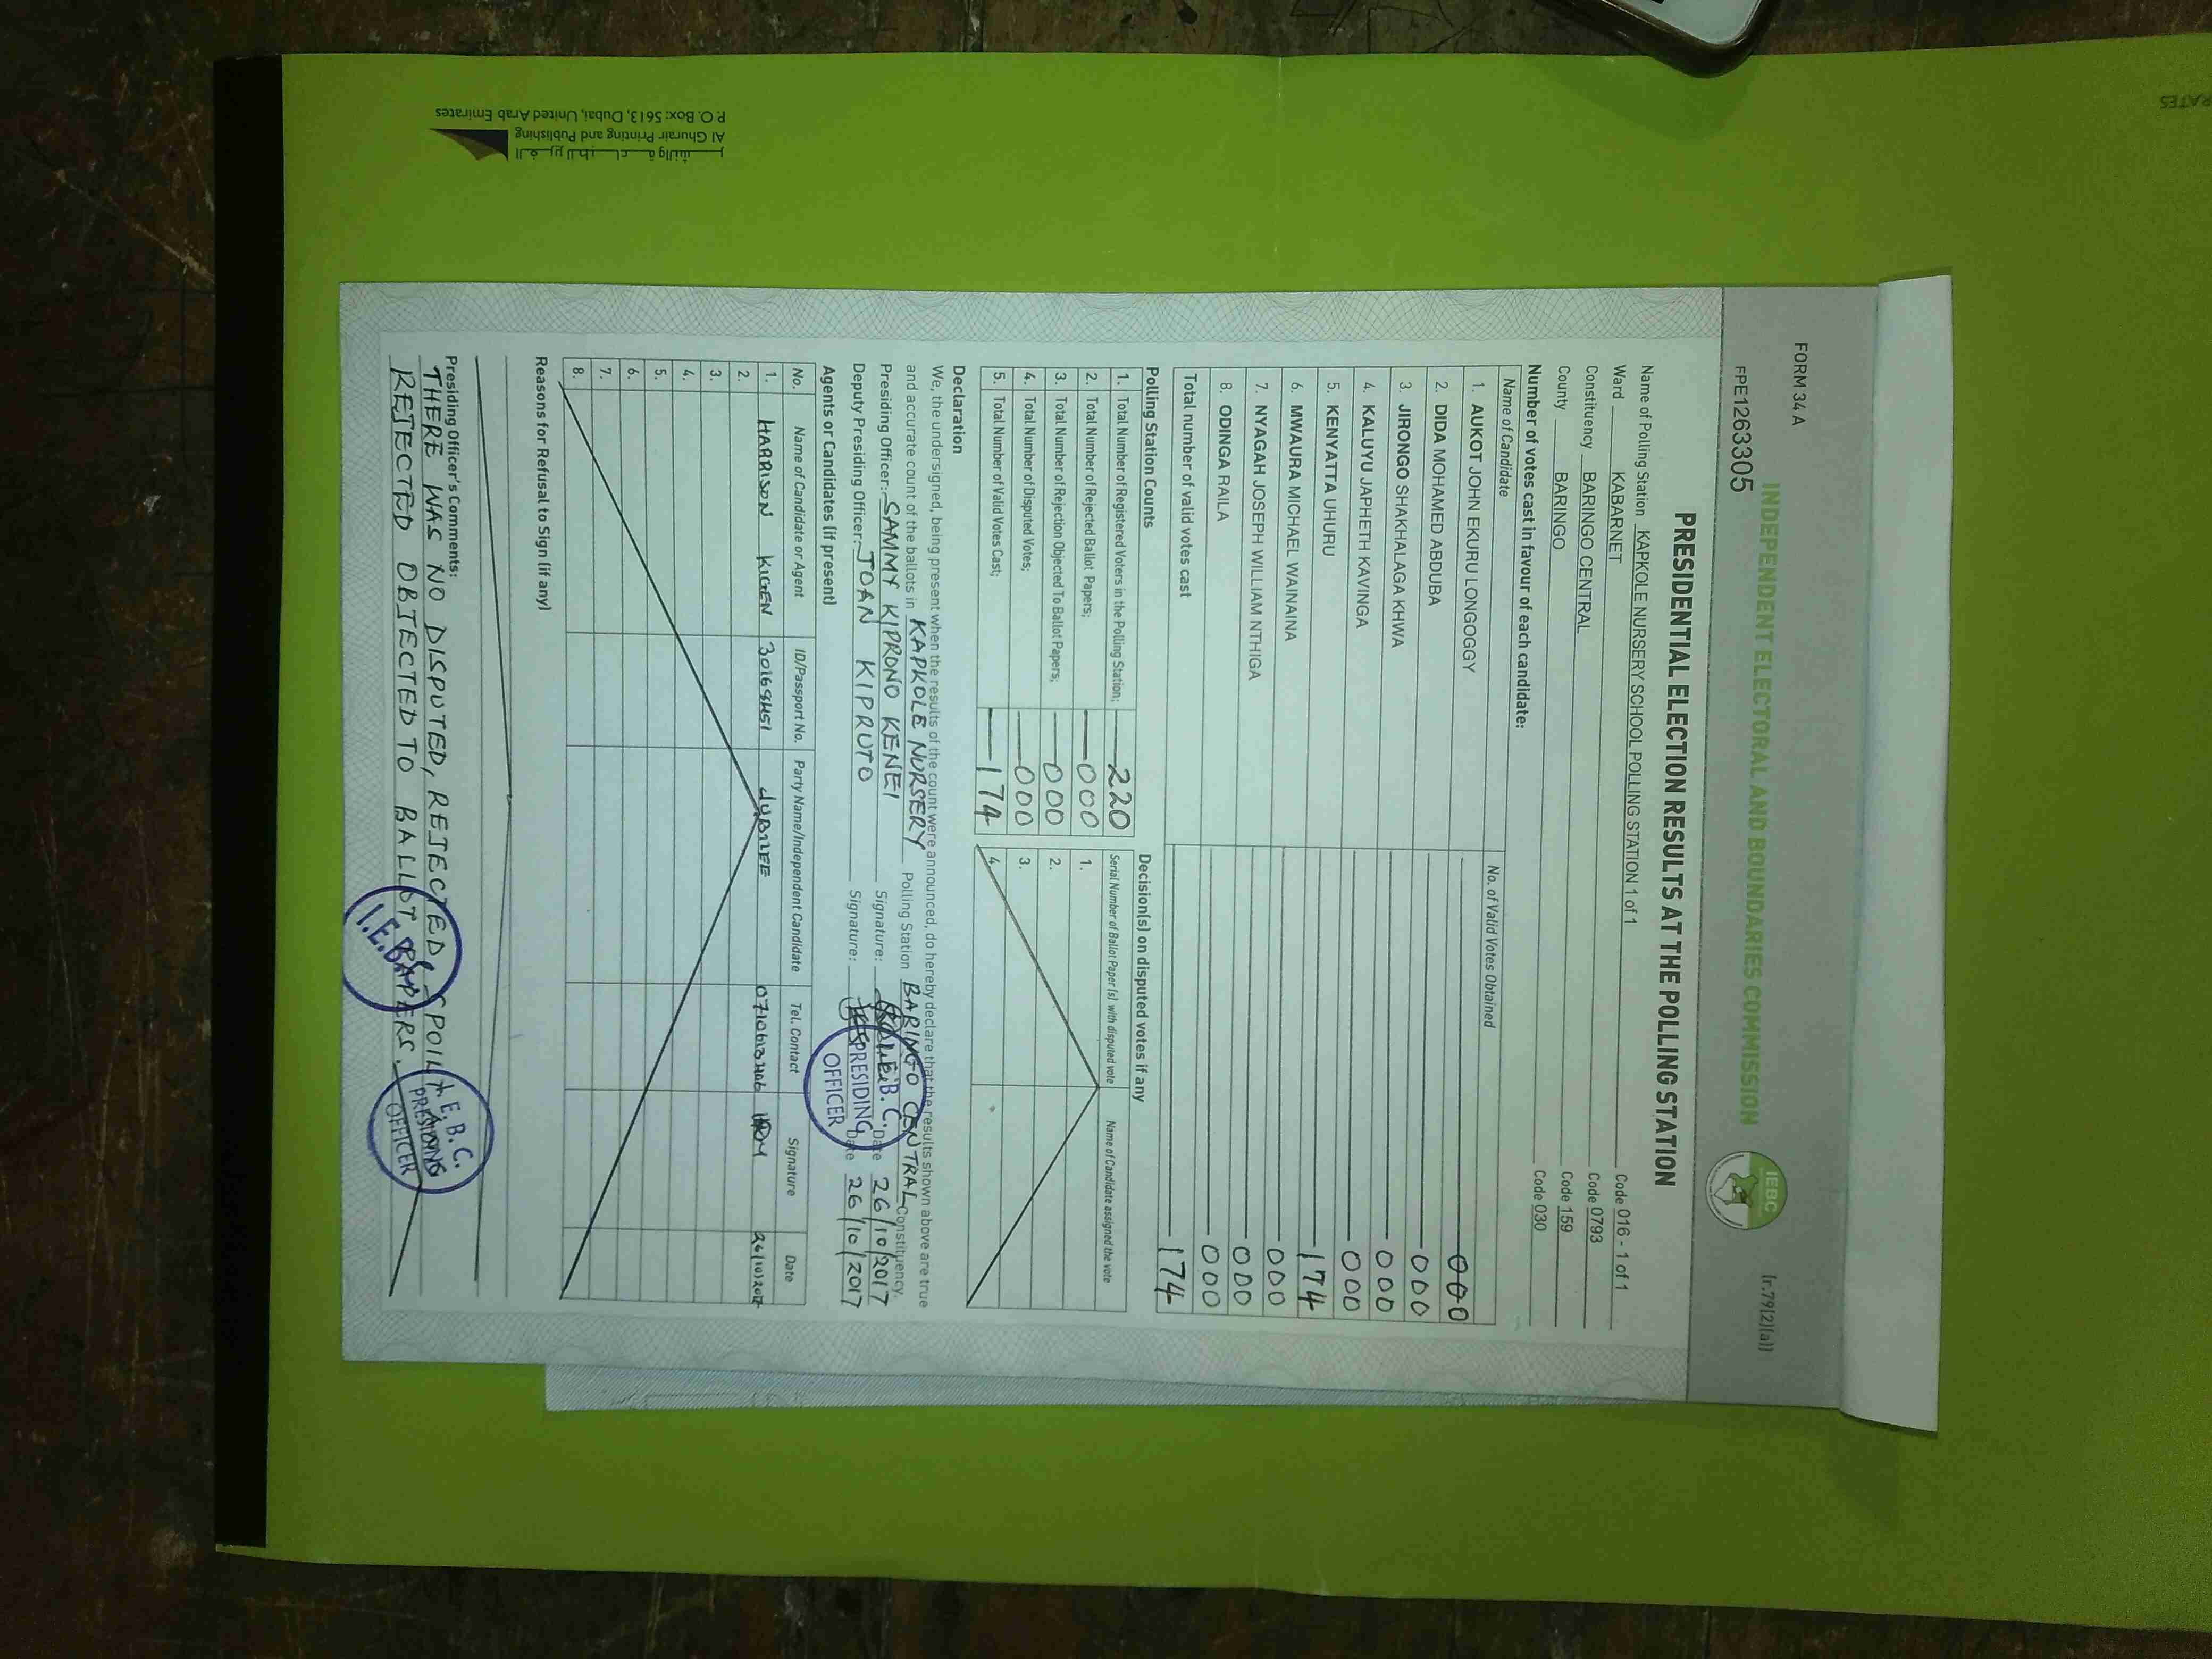 FORM 34 A
(r.79(2)(a))
INDEPENDENT ELECTORAL AND BOUNDARIES COMMISSION
IEBC
FPE1263305
PRESIDENTIAL ELECTION RESULTS AT THE POLLING STATION
Name of Polling Station KAPKOLE NURSERY SCHOOL POLLING STATION 1 of 1 Code 016 - 1 of 1
Ward KABARNET Code 0793
Constituency BARINGO CENTRAL Code 159
County BARINGO Code 030
Number of votes cast in favour of each candidate:
Name of Candidate No. of Valid Votes Obtained
1. AUKOT JOHN EKURU LONGOGGY 000
2. DIDA MOHAMED ABDUBA 000
3. JIRONGO SHAKHALAGA KHWA 000
4. KALUYU JAPHETH KAVINGA 000
5. KENYATTA UHURU 174
6. MWAURA MICHAEL WAINAINA 000
7. NYAGAH JOSEPH WILLIAM NTHIGA 000
8. ODINGA RAILA 000
Total number of valid votes cast 174
Polling Station Counts
1. Total Number of Registered Voters in the Polling Station; 220
2. Total Number of Rejected Ballot Papers; 000
3. Total Number of Rejection Objected To Ballot Papers; 000
4. Total Number of Disputed Votes; 000
5. Total Number of Valid Votes Cast; 174
Decision(s) on disputed votes if any
Serial Number of Ballot Paper (s) with disputed vote Name of Candidate assigned the vote
1.
2.
3.
4.
Declaration
We, the undersigned, being present when the results of the count were announced, do hereby declare that the results shown above are true
and accurate count of the ballots in KAPKOLE NURSERY Polling Station BARINGO CENTRAL Constituency.
Presiding Officer: SAMMY KIPRONO KENEI Signature: Date 26/10/2017
Deputy Presiding Officer: JOAN KIPRUTO Signature: Date 26/10/2017
I.E.B.C.
PRESIDING
OFFICER
Agents or Candidates (if present)
No. Name of Candidate or Agent ID/Passport No. Party Name/Independent Candidate Tel. Contact Signature Date
1. HARRISON KIGEN JUBILEE 26/10/2017
2.
3.
4.
5.
6.
7.
8.
Reasons for Refusal to Sign (if any)
Presiding Officer's Comments:
THERE WAS NO DISPUTED, REJECTED, SPOILT AND
REJECTED OBJECTED TO BALLOT PAPERS.
I.E.B.C.
I.E.B.C.
PRESIDING
OFFICER
Al Ghurair Printing and Publishing
P.O. Box: 5613, Dubai, United Arab Emirates